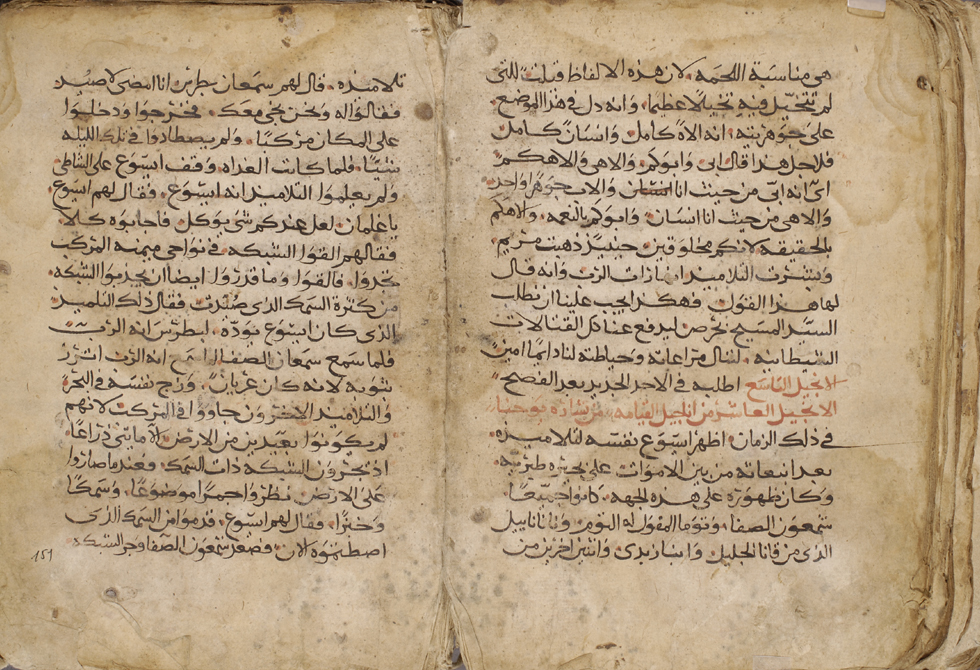 هي مناسبة اللحمه. لان هذه الالفاظ قيلت للتي
لم تتخيل فيه تخيلا عظيما. وانه دل في هذا الموضع
على جوهريته. انه الاه كامل وانسان كامل
فلاجل هذا قال ابي وابوكم. والاهي والاهكم
اي انه ابي من حيث انا والاب جوهرا واحد
والاهي من حيث انا انسان. وابوكم بالنعمه. والاهكم
بالحقيقه لانكم مخلوقين. حينيذ ذهبت مريم
وبشرت التلاميذ انها رات الرب وانه قال
لها هذا القول. فهكذا يجب علينا ان نطلب
السيد المسيح بحرص ليدفع عنا كل القتالات
الشيطانيه. لننال مراعاته وحياطته لنا دايما امين
الانجيل التاسع اطلبه في الاحد الجديد بعد الفصح
الانجيل العاشر من اناجيل القيامه من بشارة يوحنا
في ذلك الزمان. اظهر ايسوع نفسه لتلاميذه
بعد انبعاثه من بين الاموات على بحيرة طبريه
وكان ظهوره على هذه الجهه. كانوا جميعا
شمعون الصفا. وتوما المقول له التوم. وناثاناييل
الذي من قانا الجليل وابنا زبدي واثنين اخرين من
تلاميذه. قال لهم سمعان بطرس انا امضي لاصيد
فقالوا له ونحن نجي معك. فخرجوا ودخلوا
على المكان مركبا. ولم يصطادوا في تلك الليله
شيا. فلما كانت الغداه وقف ايسوع على الشاطي
ولم يعلموا التلاميذ انه ايسوع. فقال لهم ايسوع
يا غلمان لعل عندكم شي يوكل. فاجابوه كلا
فقال لهم القوا الشبكه في نواحي ميمنه المركب
تجدوا. فالقوا وما قدروا ايضا ان يجذبوا الشبكه
من كثرة السمك الذي صيدت فقال ذلك التلميذ
الذي كان ايسوع يوده. لبطرس انه الرب
فلما سمع سمعان الصفا انه الرب اتزر
بثوبه لانه كان عريان. وزج نفسه في البحر
والتلاميذ الاخرون جاووا في المركب لانهم
لم يكونوا بعيدين من الارض الا مايتي ذراعا.
اذ يجرون الشبكه ذات السمك. فعندما صاروا
على الارض نظروا جمرا موضوعا. وسمكا
وخبزا. فقال لهم ايسوع. قدموا من السمك الذي
اصطدتموه الان. فصعد شمعون الصفا وجر الشبكه
151